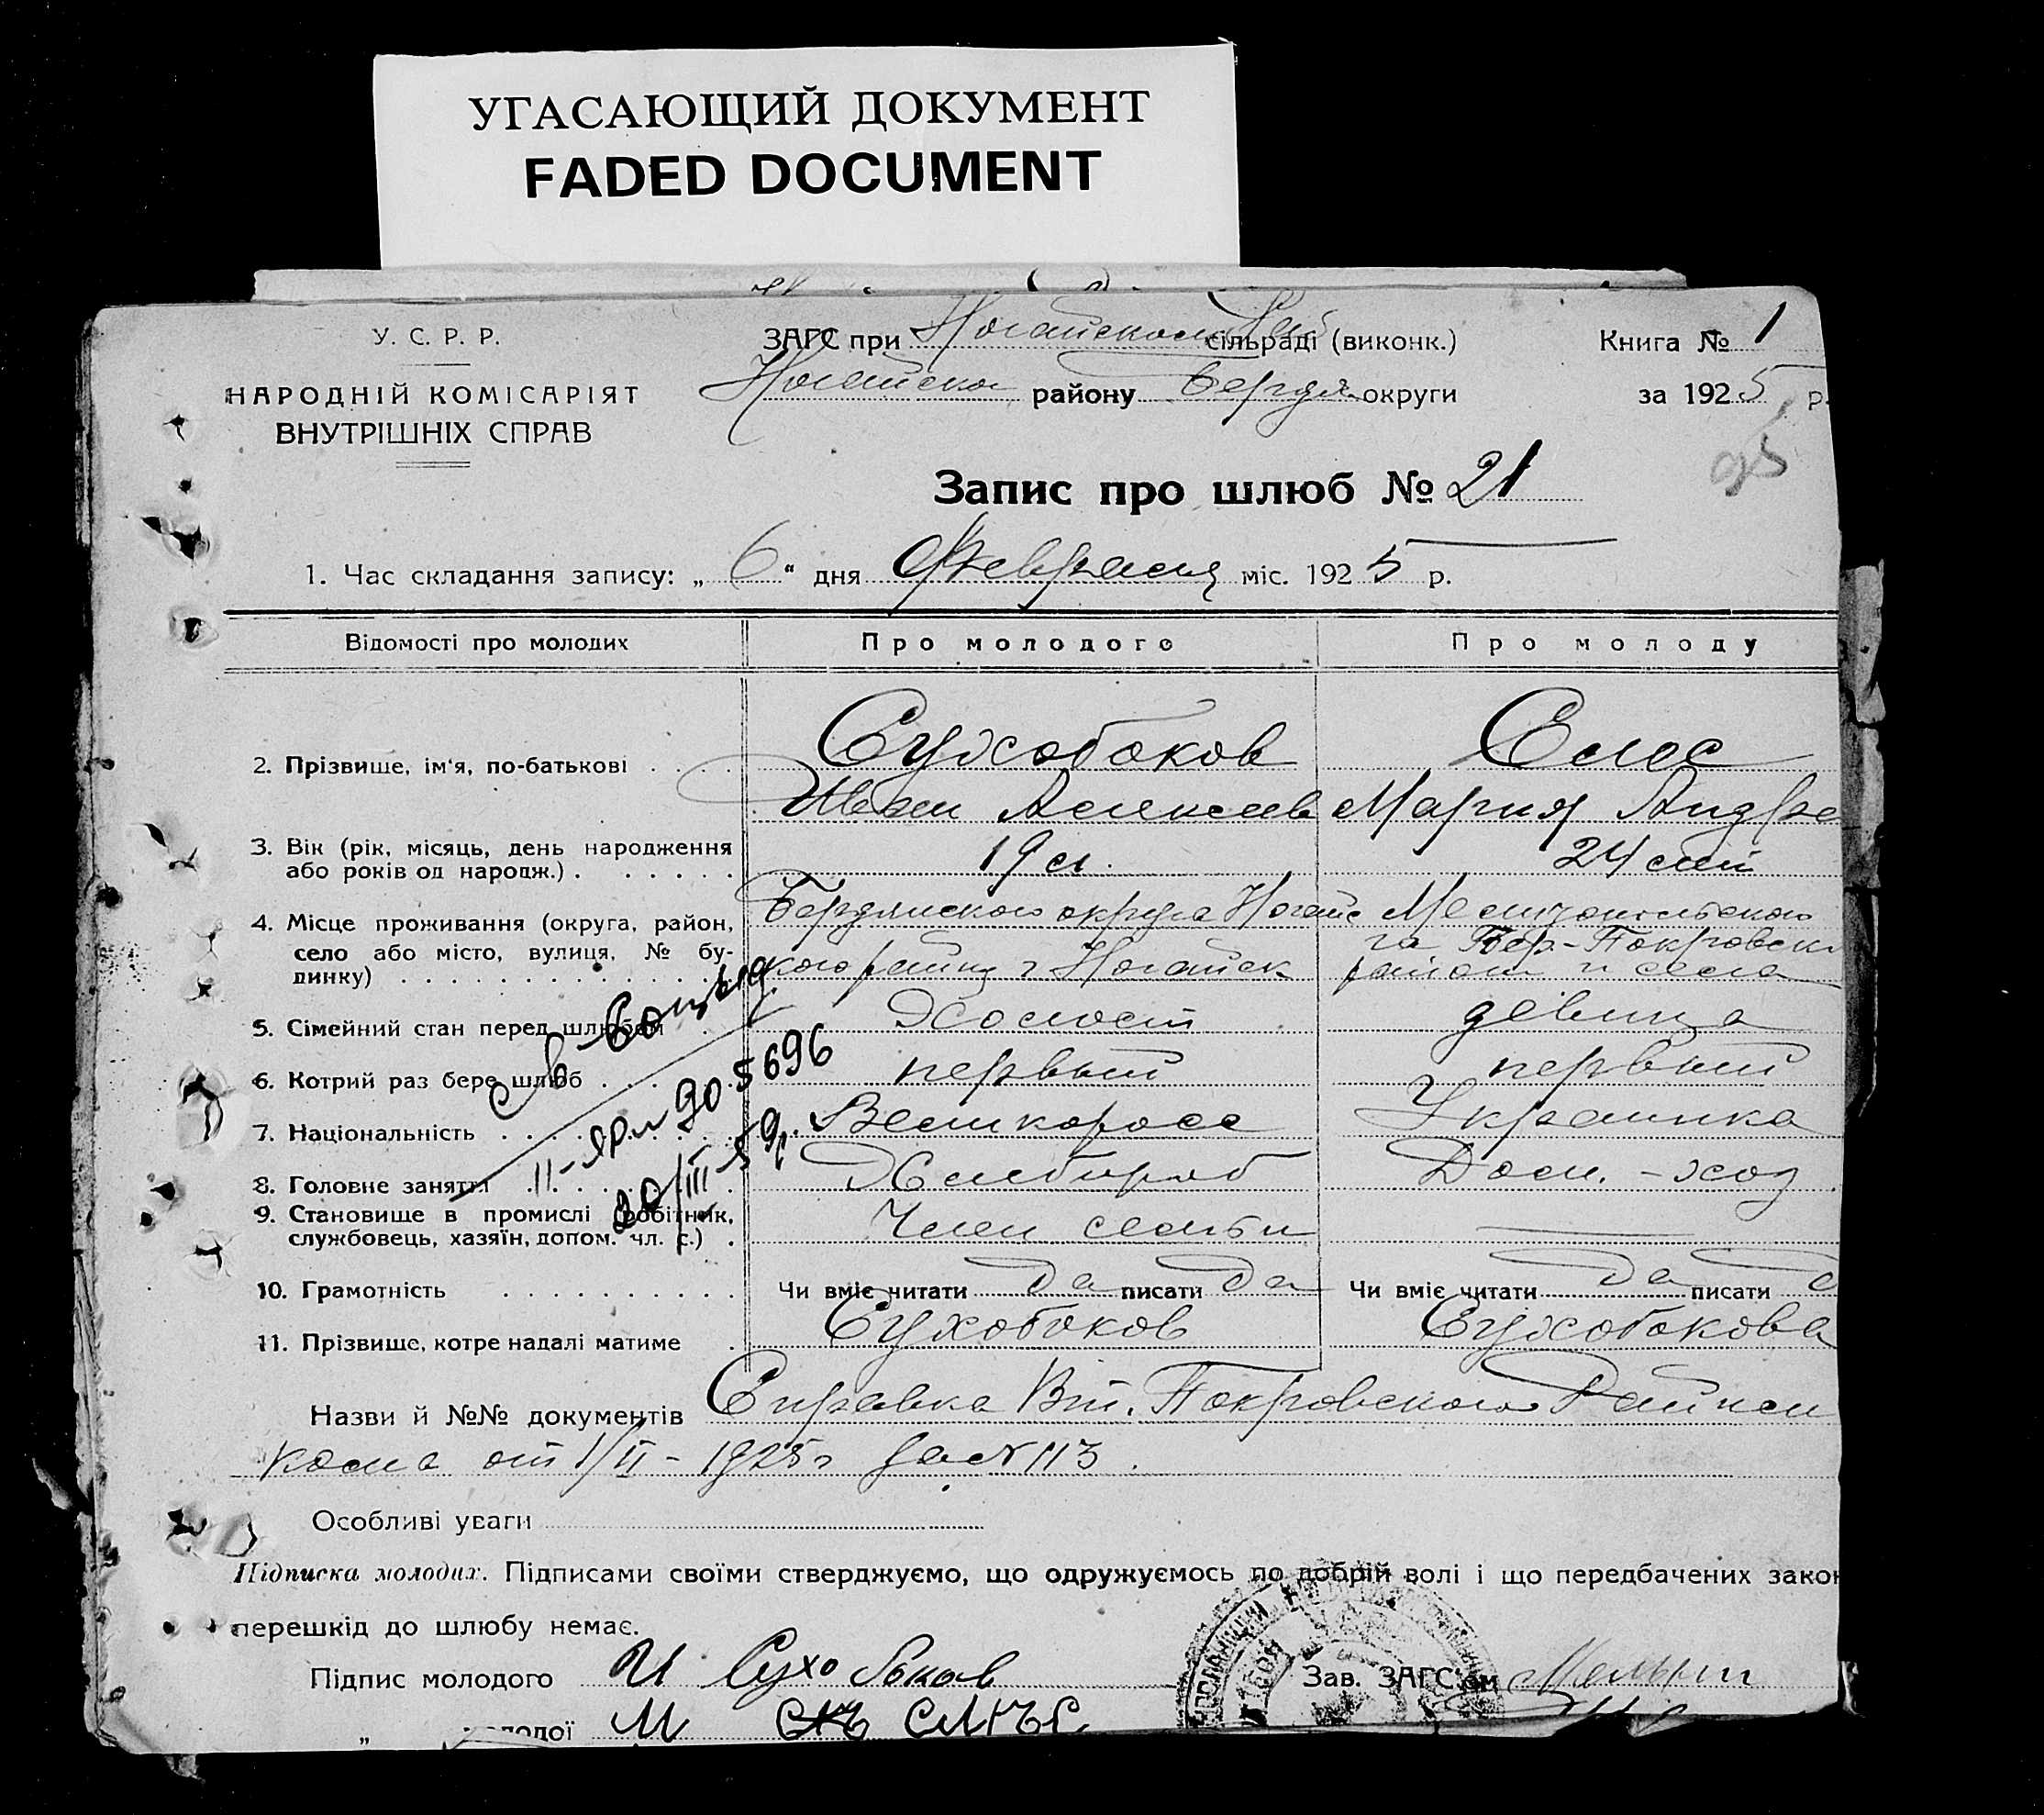 УГАСАЮЩИЙ ДОКУМЕНТ
FADED DOCUMENT
У. С. Р. Р.
НАРОДНІЙ КОМІСАРІЯТ
ВНУТРІШНІХ СПРАВ
ЗАГС при Ногайском сільраді (виконк.)
района Бердян округи
Книга № 1
за 1925 р.
Запис про шлюб № 21
1. Час складання запису: „ 6 " дня Февраля міс. 1925 р.
Відомості про молодих Про молодого Про молоду
2. Прізвише, ім'я, по-батькові . . . . Сухобоков Елес
Иван Алексеев Мария Андре
3. Вік (рік, місяць, день народження
або років од народж.) . . . . . . 19 л. 24 лет
4. Місце проживання (округа, район,
село або місто, вулиця, № бу-
динку) . . . . . . . . . .
Бердянского округа Ногайс
кого района г Ногайск
Мелитопольского
Покровск
района села
5. Сімейний стан перед шлюбом . . Холост девица
6. Котрий раз бере шлюб . . . . первый первый
7. Національність . . . . . . Великоросс Украинка
8. Головне заняття . . . . . Хлебороб Дом. - хоз
9. Становище в промислі (робітник,
службовець, хазяїн, допом. чл. с.) . Член семьи —
10. Грамотність . . . . . . . . . . Чи вміє читати да писати да Чи вміє читати да писати
11. Прізвище, котре надалі матиме . Сухобоков Сухобокова
905696
20/III-59г.
Назви й №№ документів Справка Вт. Покровского Райиспол
кома от 1/II - 1925 г за № 113.
Особливі уваги
Підписка молодих. Підписами своїми стверджуємо, що одружуємось по добрій волі і що передбачених закон
перешкід до шлюбу немає.
Підпис молодого И Сухобоков Зав. ЗАГС'ом
„ молодої М